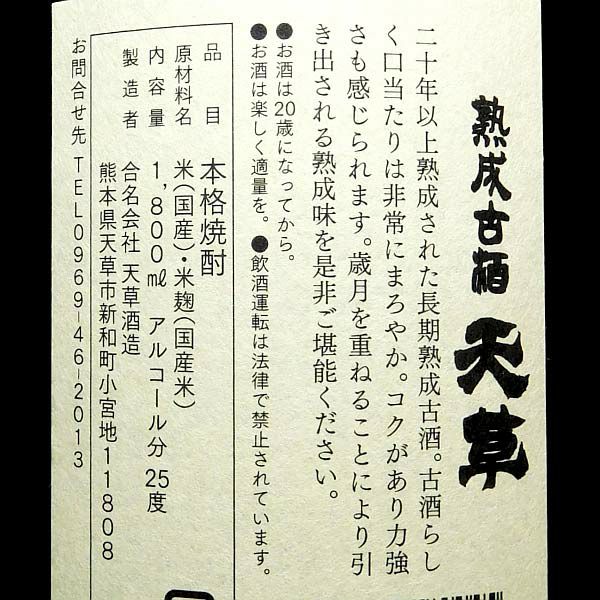 熟成古酒 天草
二十年以上熟成された長期熟成古酒。古酒らし
く口当たりは非常にまろやか。コクがあり力強
さも感じられます。歳月を重ねることにより引
き出される熟成味を是非ご堪能ください。
●お酒は20歳になってから。
●お酒は楽しく適量を。●飲酒運転は法律で禁止されています。
品目 本格焼酎
原材料名 米(国産)・米麹(国産米)
内容量 1,800㎖ アルコール分 25度
製造者 合名会社 天草酒造
熊本県天草市新和町小宮地11808
お問合せ先 TEL0969-46-2013